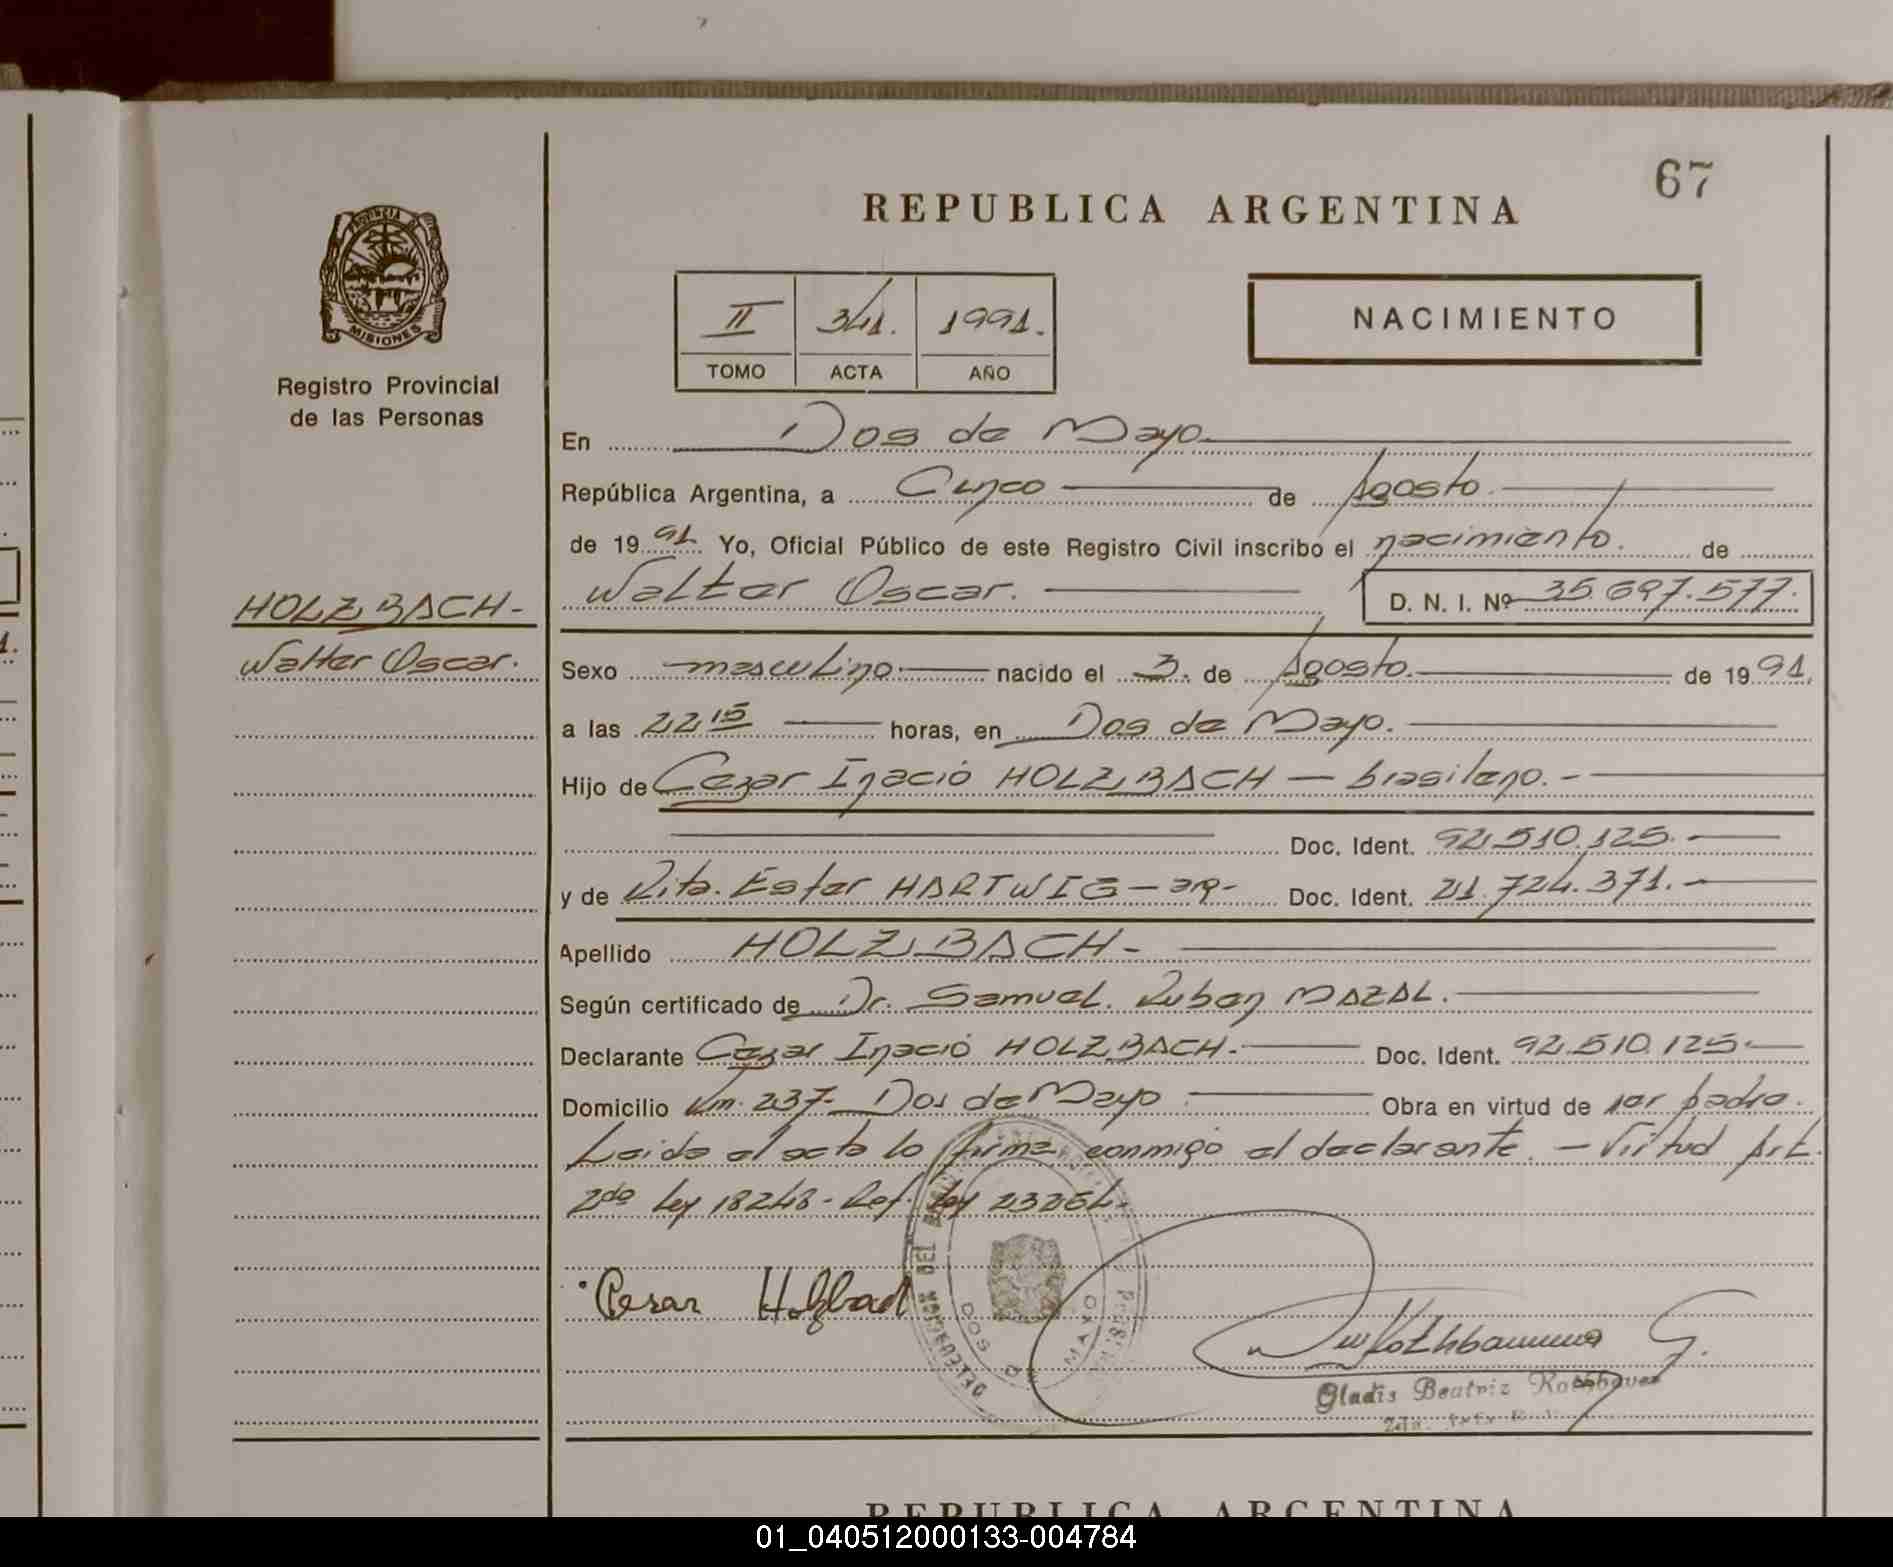 67
REPUBLICA ARGENTINA
PROVINCIA DE
MISIONES
Registro Provincial
de las Personas
II 341. 1991.
TOMO ACTA AÑO
NACIMIENTO
En Dos de Mayo
República Argentina, a Cinco de Agosto.
de 1991 Yo, Oficial Público de este Registro Civil inscribo el nacimiento. de
Walter Oscar. D. N. I. Nº 35.697.577.
HOLZBACH-
Walter Oscar.
Sexo masculino nacido el 3. de Agosto. de 1991.
a las 22 15 horas, en Dos de Mayo.
Hijo de Cezar Inació HOLZBACH - brasileño. -
Doc. Ident. 92.510.125.-
y de Rita. Ester HARTWIG - ar- Doc. Ident. 21.724.371.-
Apellido HOLZBACH-
Según certificado de Dr. Samuel. Ruben MAZAL.
Declarante Cezar Inació HOLZBACH.- Doc. Ident. 92.510.125.-
Domicilio Km. 237- Dos de Mayo Obra en virtud de ser padre.
Leida el acta lo firma conmigo el declarante. - Virtud Art.
2do Ley 18248- Ref. Ley 23264.
Cesar Holzbach
DOS DE MAYO
Gladis Beatriz Rothbauer
REPUBLICA ARGENTINA
01_040512000133-004784